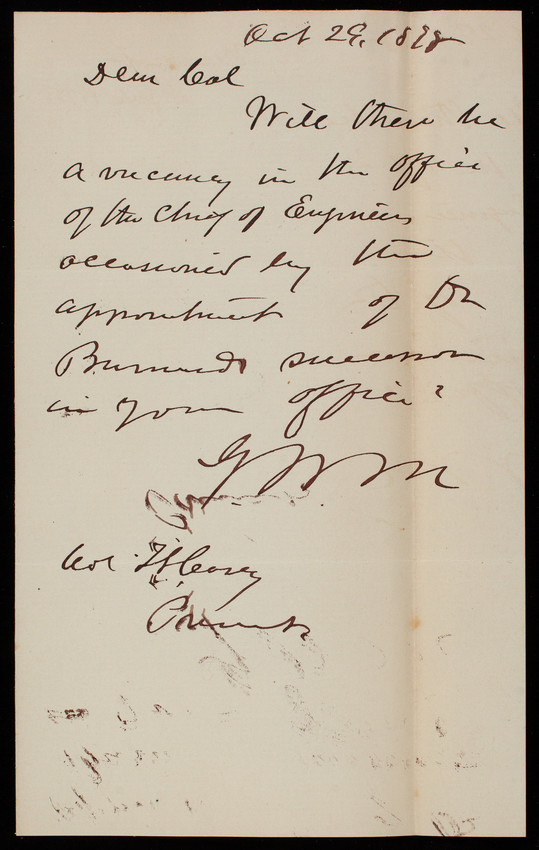 Oct 29, 1878
Dear Col
Will there be
a vacancy in the office
of the Chief of Engineers
occasioned by the
appointment of Dr
successor
in your office?
Col. T. L. Casey
Present